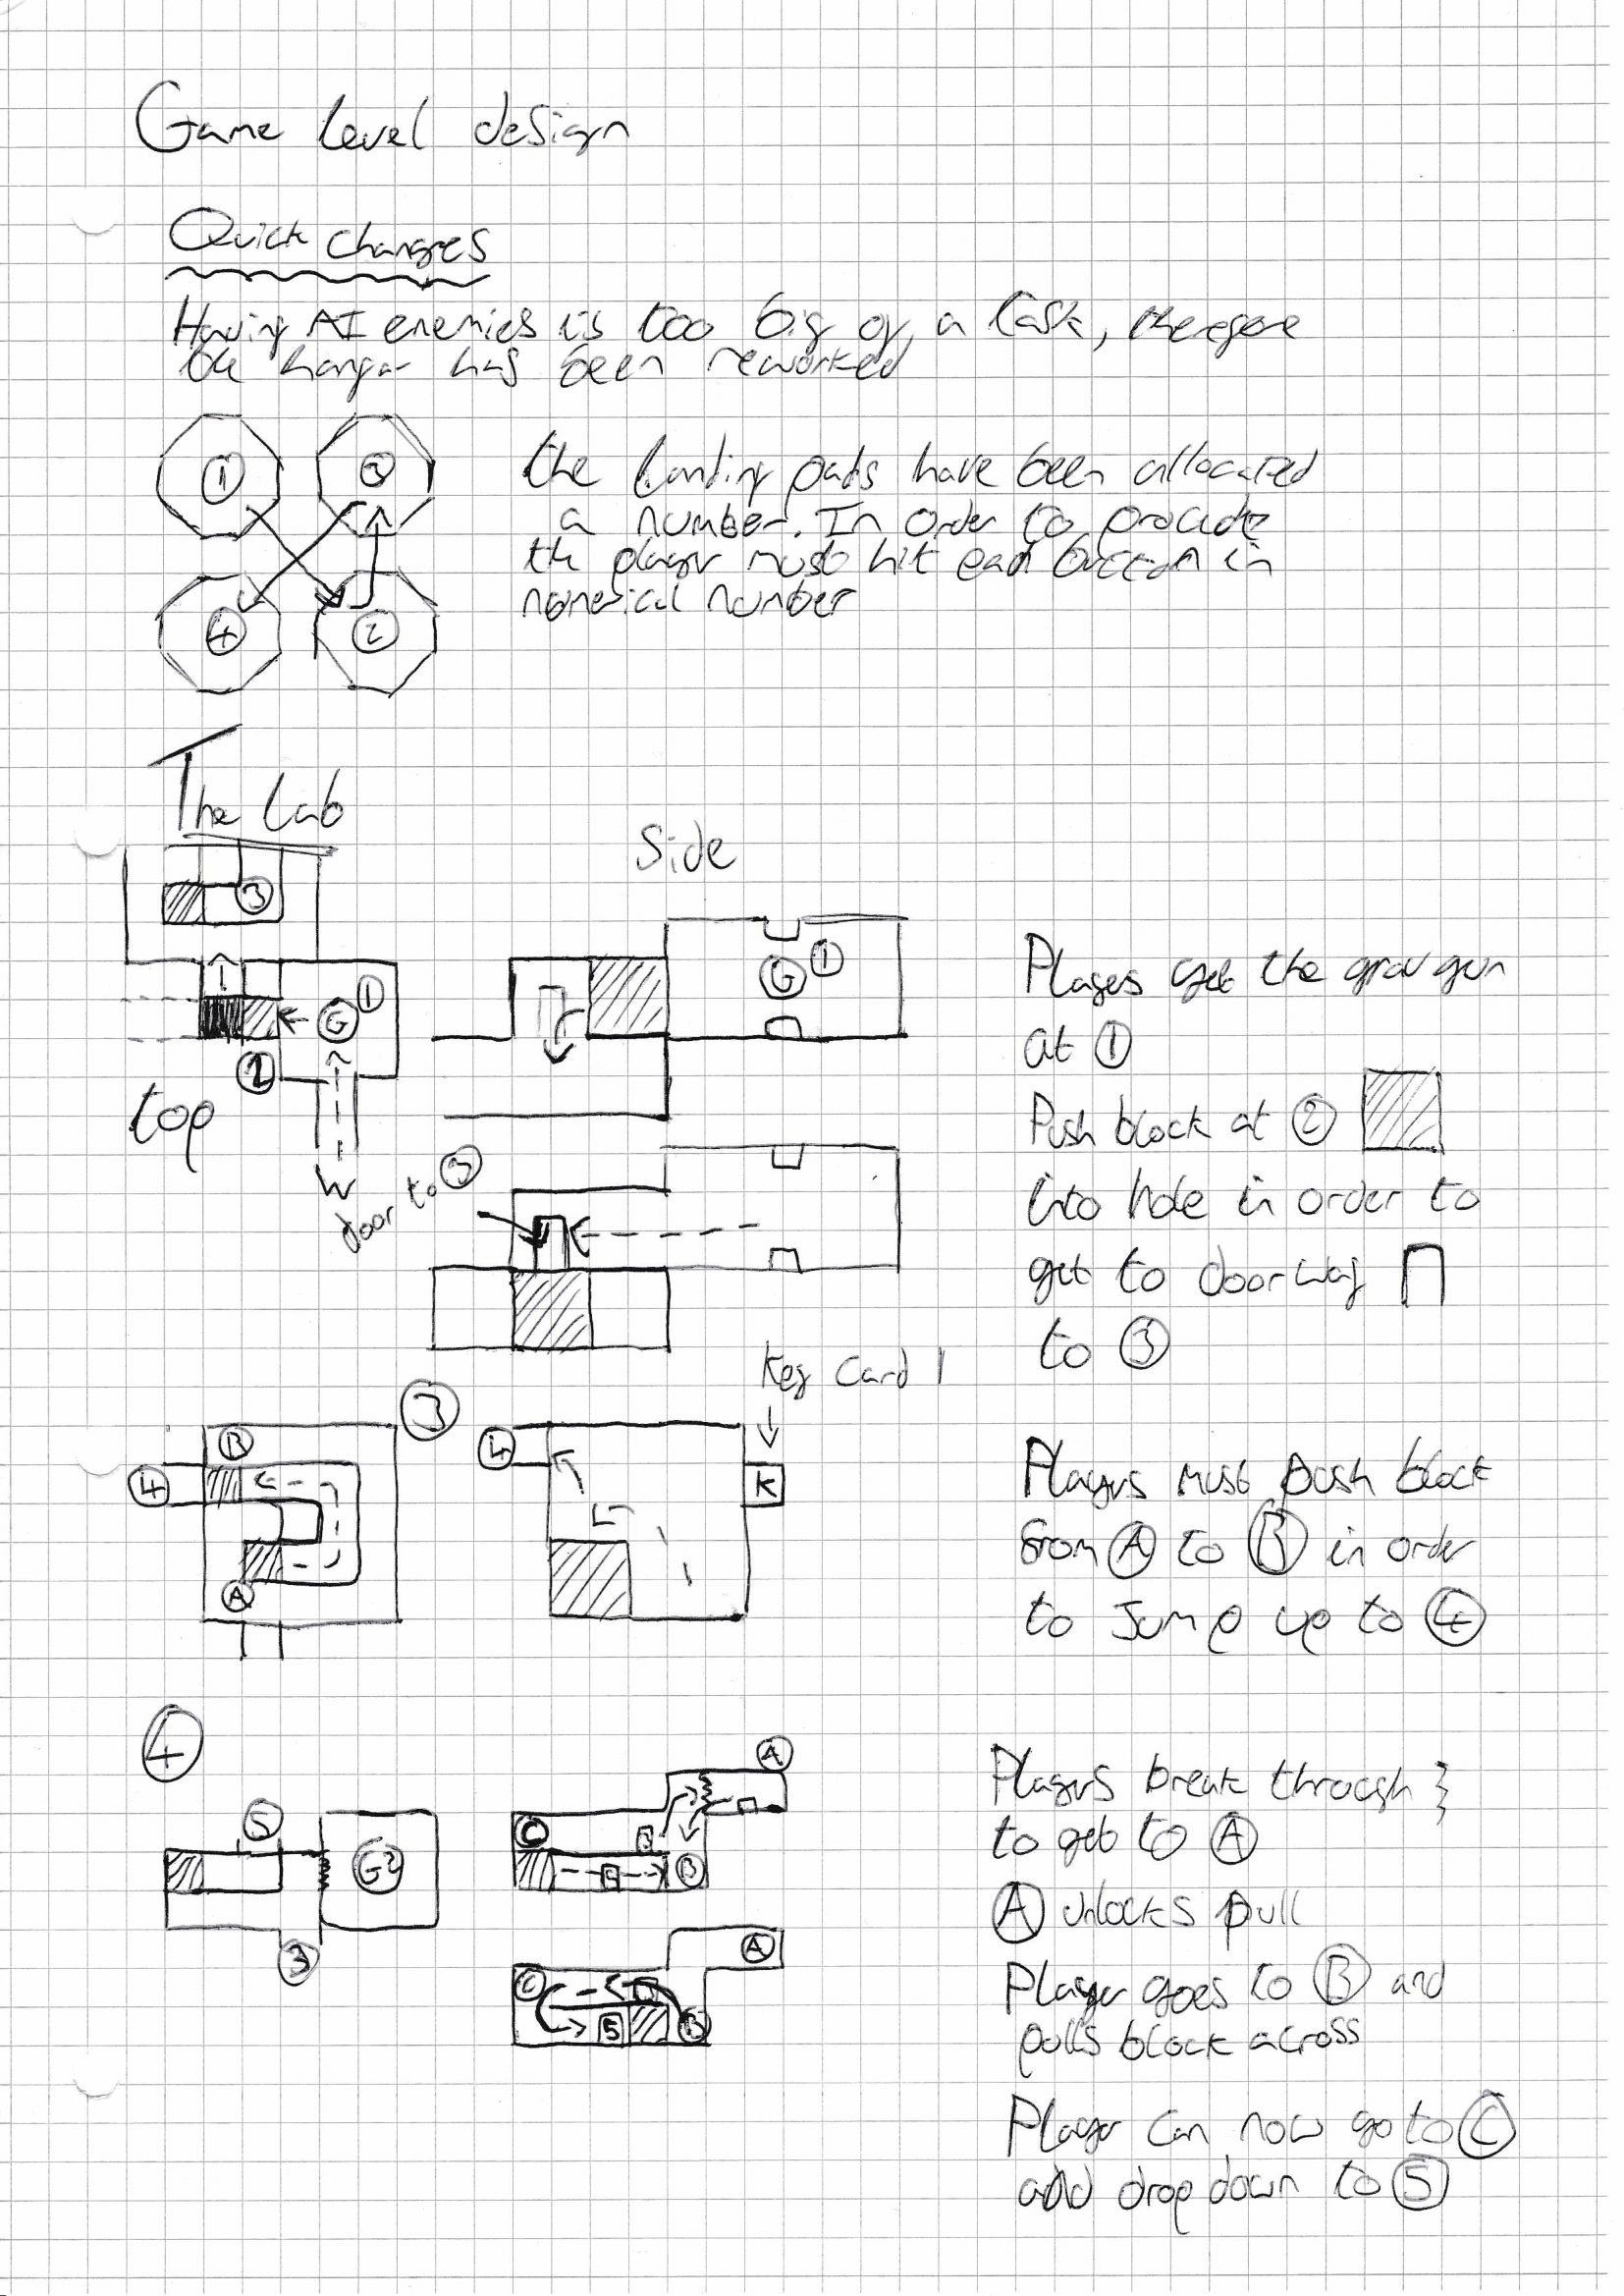 Game level design
Quick changes
Having AI enemies is too big of a task, therefore
the hangar has been reworked
1
3
4
2
the landing pads have been allocated
a number. In order to procide
the player must hit each button in
numerical number
The Lab
Side
3
1
G
2
top
G
1
door to 3
Players get the grav gun
at 1
Push block at 2
into hole in order to
get to doorway
to 3
3
Key Card 1
B
4
A
4
K
Players must push block
from A to B in order
to Jump up to 4
4
5
G2
3
A
C
B
A
C
5
B
Players break through
to get to A
A unlocks pull
Player goes to B and
pulls block across
Player can now go to C
and drop down to 5